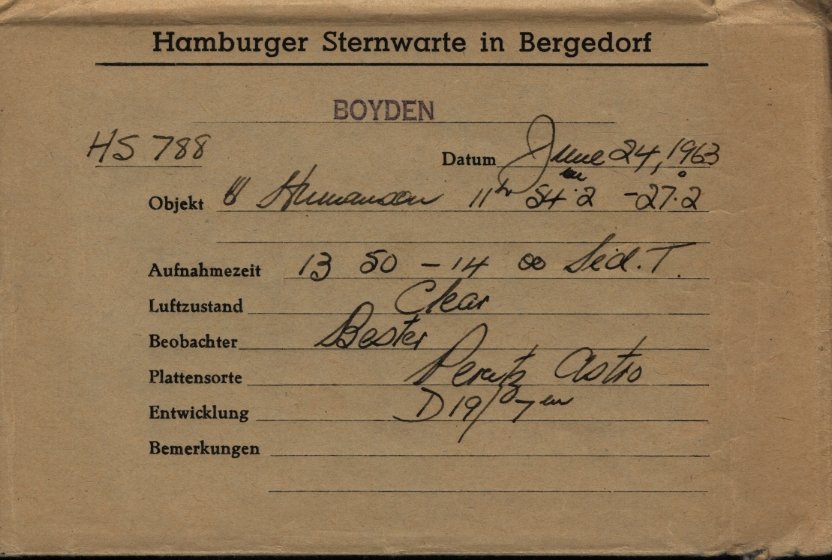 Hamburger Sternwarte in Bergedorf
BOYDEN
HS 788 Datum June 24, 1963
Objekt Humason 11h 54m.2 -27°.2
Aufnahmezeit 13 50 - 14 00 Sid. T.
Luftzustand Clear
Beobachter Bester
Plattensorte Perutz Astro
Entwicklung D19/7m
Bemerkungen